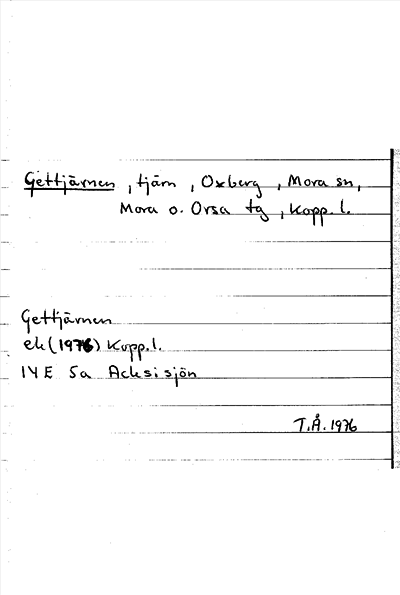 Gettjärnen, tjärn, Oxberg, Mora sn,
Mora o. Orsa tg, Kopp. l.
Gettjärnen
ek (1976) Kopp. l.
14E 5a Acksisjön
T.Å. 1976